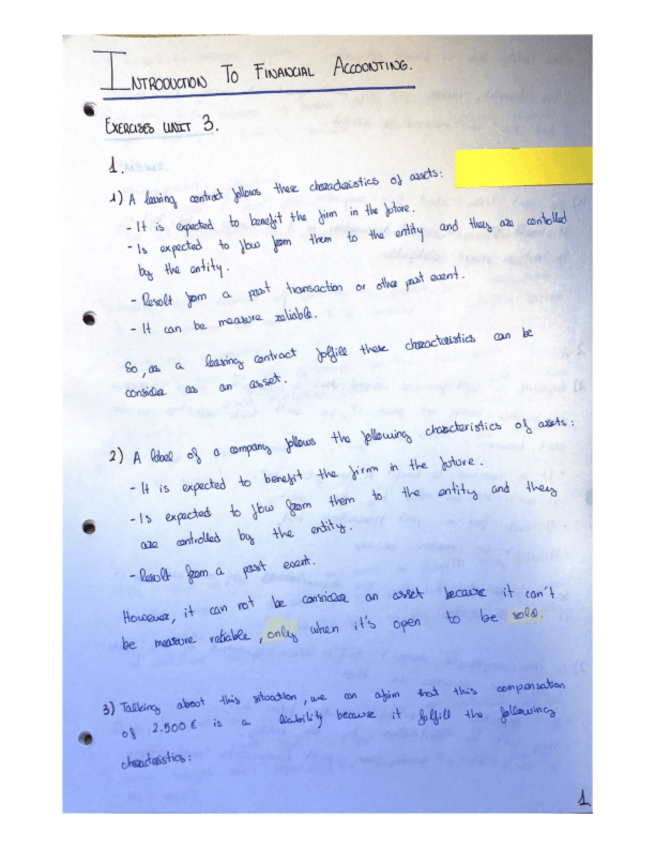 INTRODUCTION TO FINANCIAL ACCOUNTING.
EXERCISES UNIT 3.
1.
1) A leasing contract follows these characteristics of assets:
- It is expected to benefit the firm in the future.
- Is expected to flow from them to the entity and they are controlled
by the entity.
- Result from a past transaction or other past event.
- It can be measure reliable.
So, as a leasing contract fulfill these characteristics can be
consider as an asset.
2) A label of a company follows the following characteristics of assets:
- It is expected to benefit the firm in the future.
- Is expected to flow from them to the entity and they
are controlled by the entity.
- Result from a past event.
However, it can not be consider an asset because it can't
be measure reliable, only when it's open to be sold.
3) Talking about this situation, we can afirm that this compensation
of 2.500 € is a liability because it fulfill the following
characteristics:
1